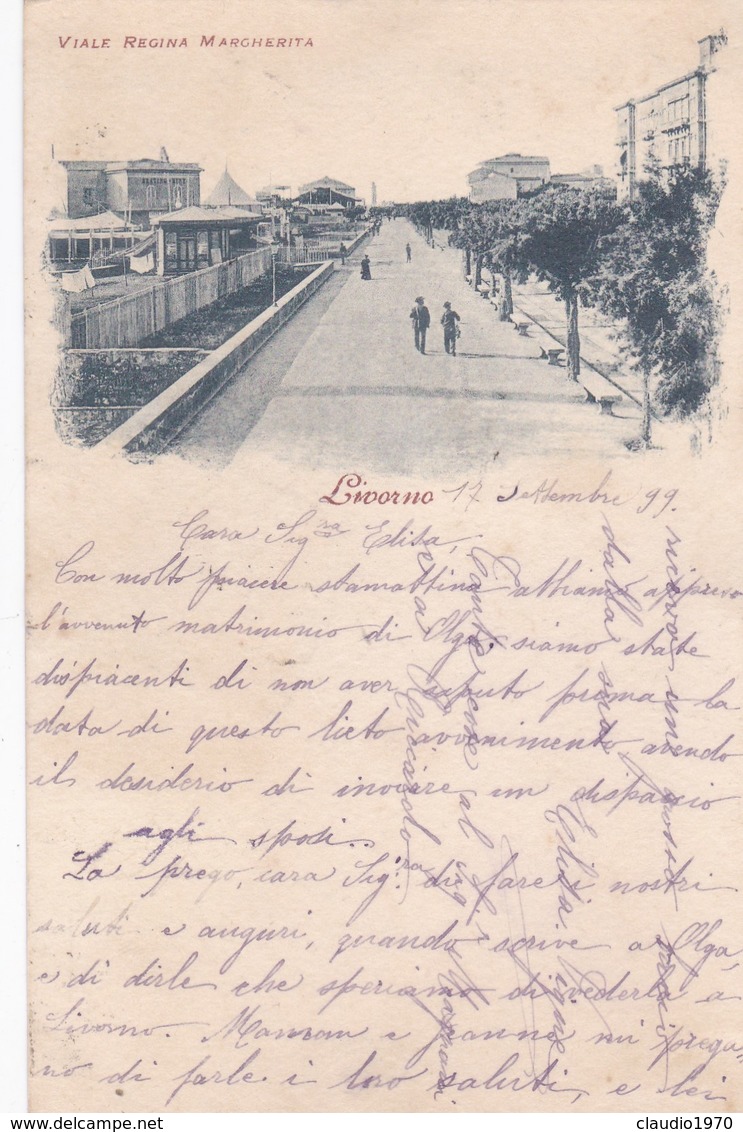 VIALE REGINA MARGHERITA
Livorno 17 Settembre 99.
Cara Sig.ra Elisa,
Con molto piacere stamattina abbiamo appreso
l'avvenuto matrimonio di Olga; siamo state
dispiacenti di non aver saputo prima la
data di questo lieto avvenimento, avendo
il desiderio di inviare un dispaccio
agli sposi.
La prego, cara Sig.ra di fare i nostri
saluti e auguri, quando scrive a Olga,
e di dirle che speriamo di vederla a
Livorno. Maman e mi prega
no di farle i loro saluti, e lei
riceva un bacio
dalla sua
tante cose al Sig.r
e a Riccardo
claudio1970